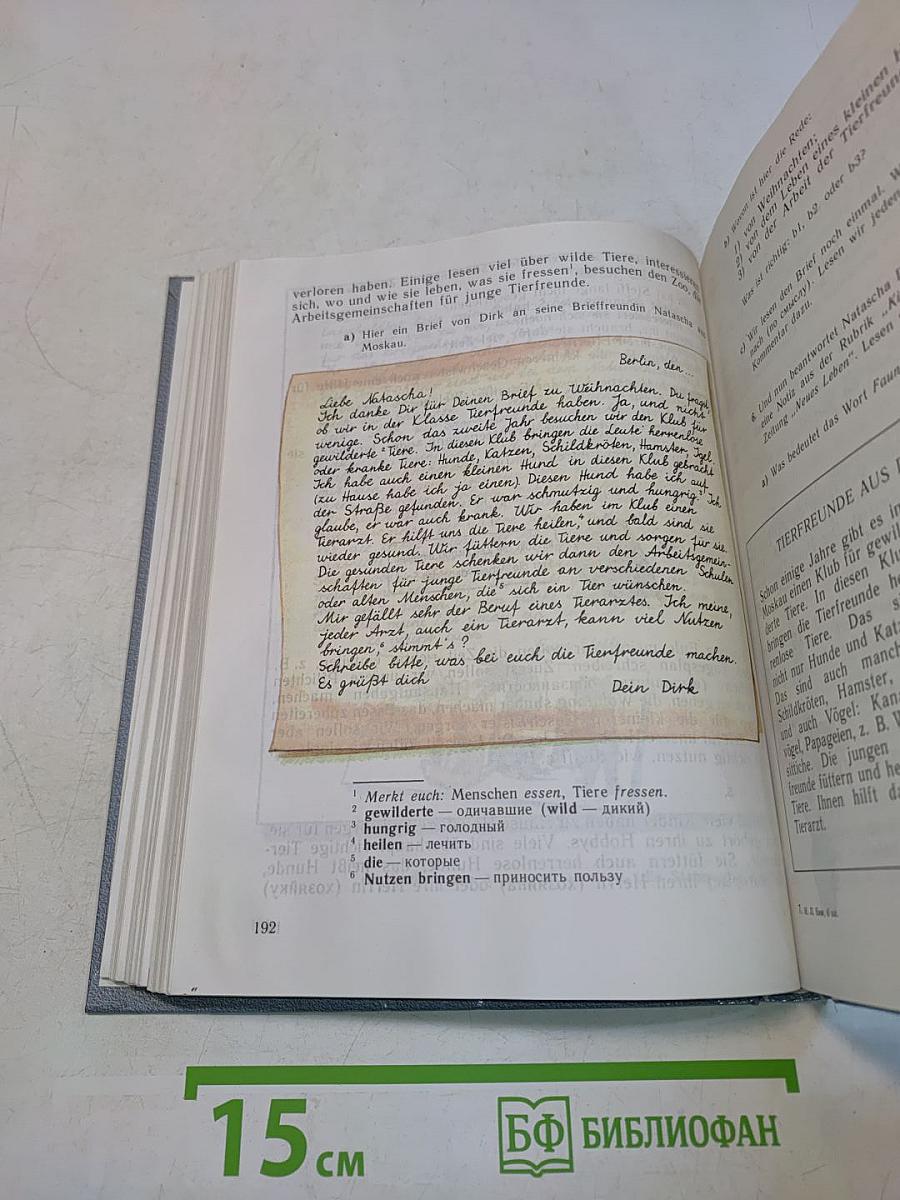 verloren haben. Einige lesen viel über wilde Tiere, interessieren
sich, wo und wie sie leben, was sie fressen¹, besuchen den Zoo, die
Arbeitsgemeinschaften für junge Tierfreunde.
a) Hier ein Brief von Dirk an seine Brieffreundin Natascha
Moskau.
Berlin, den...
Liebe Natascha!
Ich danke Dir für Deinen Brief zu Weihnachten. Du fragst,
ob wir in der Klasse Tierfreunde haben. Ja, und nicht
wenige. Schon das zweite Jahr besuchen wir den Klub für
gewilderte² Tiere. In diesen Klub bringen die Leute herrenlose
oder kranke Tiere: Hunde, Katzen, Schildkröten, Hamster, Igel.
Ich habe auch einen kleinen Hund in diesen Klub gebracht
(zu Hause habe ich ja einen). Diesen Hund habe ich auf
der Straße gefunden. Er war schmutzig und hungrig.³ Ich
glaube, er war auch krank. Wir haben im Klub einen
Tierarzt. Er hilft uns die Tiere heilen,⁴ und bald sind sie
wieder gesund. Wir füttern die Tiere und sorgen für sie.
Die gesunden Tiere schenken wir dann den Arbeitsgemein-
schaften für junge Tierfreunde an verschiedenen Schulen
oder alten Menschen, die⁵ sich ein Tier wünschen.
Mir gefällt sehr der Beruf eines Tierarztes. Ich meine,
jeder Arzt, auch ein Tierarzt, kann viel Nutzen
bringen,⁶ stimmt's?
Schreibe bitte, was bei euch die Tierfreunde machen.
Es grüßt dich
Dein Dirk
¹ Merkt euch: Menschen essen, Tiere fressen.
² gewilderte — одичавшие (wild — дикий)
³ hungrig — голодный
⁴ heilen — лечить
⁵ die — которые
⁶ Nutzen bringen — приносить пользу
192
b) Wovon ist hier die Rede:
1) von Weihnachten;
2) von dem Leben eines kleinen
3) von der Arbeit der Tierfreunde
Was ist richtig: b1, b2 oder b3?
c) Wir lesen den Brief noch einmal.
nach (по смыслу). Lesen wir jeden
Kommentar dazu.
6. Und nun beantwortet Natascha
eine Notiz aus der Rubrik
Zeitung „Neues Leben". Lesen
a) Was bedeutet das Wort
TIERFREUNDE AUS
Schon einige Jahre gibt es in
Moskau einen Klub für gewil-
derte Tiere. In diesen Klub
bringen die Tierfreunde
renlose Tiere. Das
nicht nur Hunde und
Das sind auch
Schildkröten, Hamster,
und auch Vögel:
vögel, Papageien, z. B.
sittiche. Die jungen
freunde füttern und
Tiere. Ihnen hilft
Tierarzt.
15 см
БФ БИБЛИОФАН